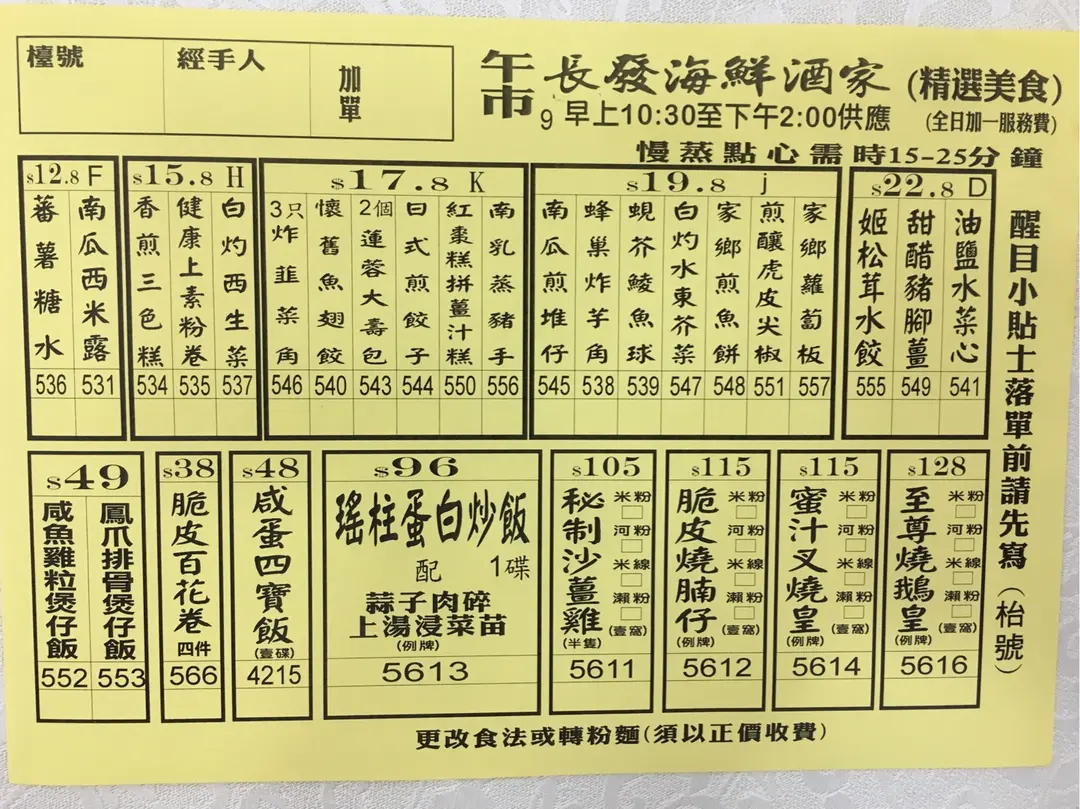 檯號
經手人
加單
午市
長發海鮮酒家(精選美食)
9 早上10:30至下午2:00供應
(全日加一服務費)
慢蒸點心需時15-25分鐘
$12.8 F
蕃薯糖水
536
南瓜西米露
531
$15.8 H
香煎三色糕
534
健康上素粉卷
535
白灼西生菜
537
$17.8 K
3只炸韮菜角
546
懷舊魚翅餃
540
2個蓮蓉大壽包
543
日式煎餃子
544
紅棗糕拼薑汁糕
550
南乳蒸豬手
556
$19.8 j
南瓜煎堆仔
545
蜂巢炸芋角
538
蜆芥鯪魚球
539
白灼水東芥菜
547
家鄉煎魚餅
548
煎釀虎皮尖椒
551
家鄉蘿蔔板
557
$22.8 D
姬松茸水餃
555
甜醋豬腳薑
549
油鹽水菜心
541
醒目小貼士落單前請先寫(枱號)
$49
咸魚雞粒煲仔飯
552
鳳爪排骨煲仔飯
553
$38
脆皮百花卷
四件
566
$48
咸蛋四寶飯
(壹碟)
4215
$96
瑤柱蛋白炒飯
配 1碟
蒜子肉碎
上湯浸菜苗
(例牌)
5613
$105
秘制沙薑雞
(半隻)
米粉
河粉
米線
瀨粉
(壹窩)
5611
$115
脆皮燒腩仔
(例牌)
米粉
河粉
米線
瀨粉
(壹窩)
5612
$115
蜜汁叉燒皇
(例牌)
米粉
河粉
米線
瀨粉
(壹窩)
5614
$128
至尊燒鵝皇
(例牌)
米粉
河粉
米線
瀨粉
(壹窩)
5616
更改食法或轉粉麵(須以正價收費)